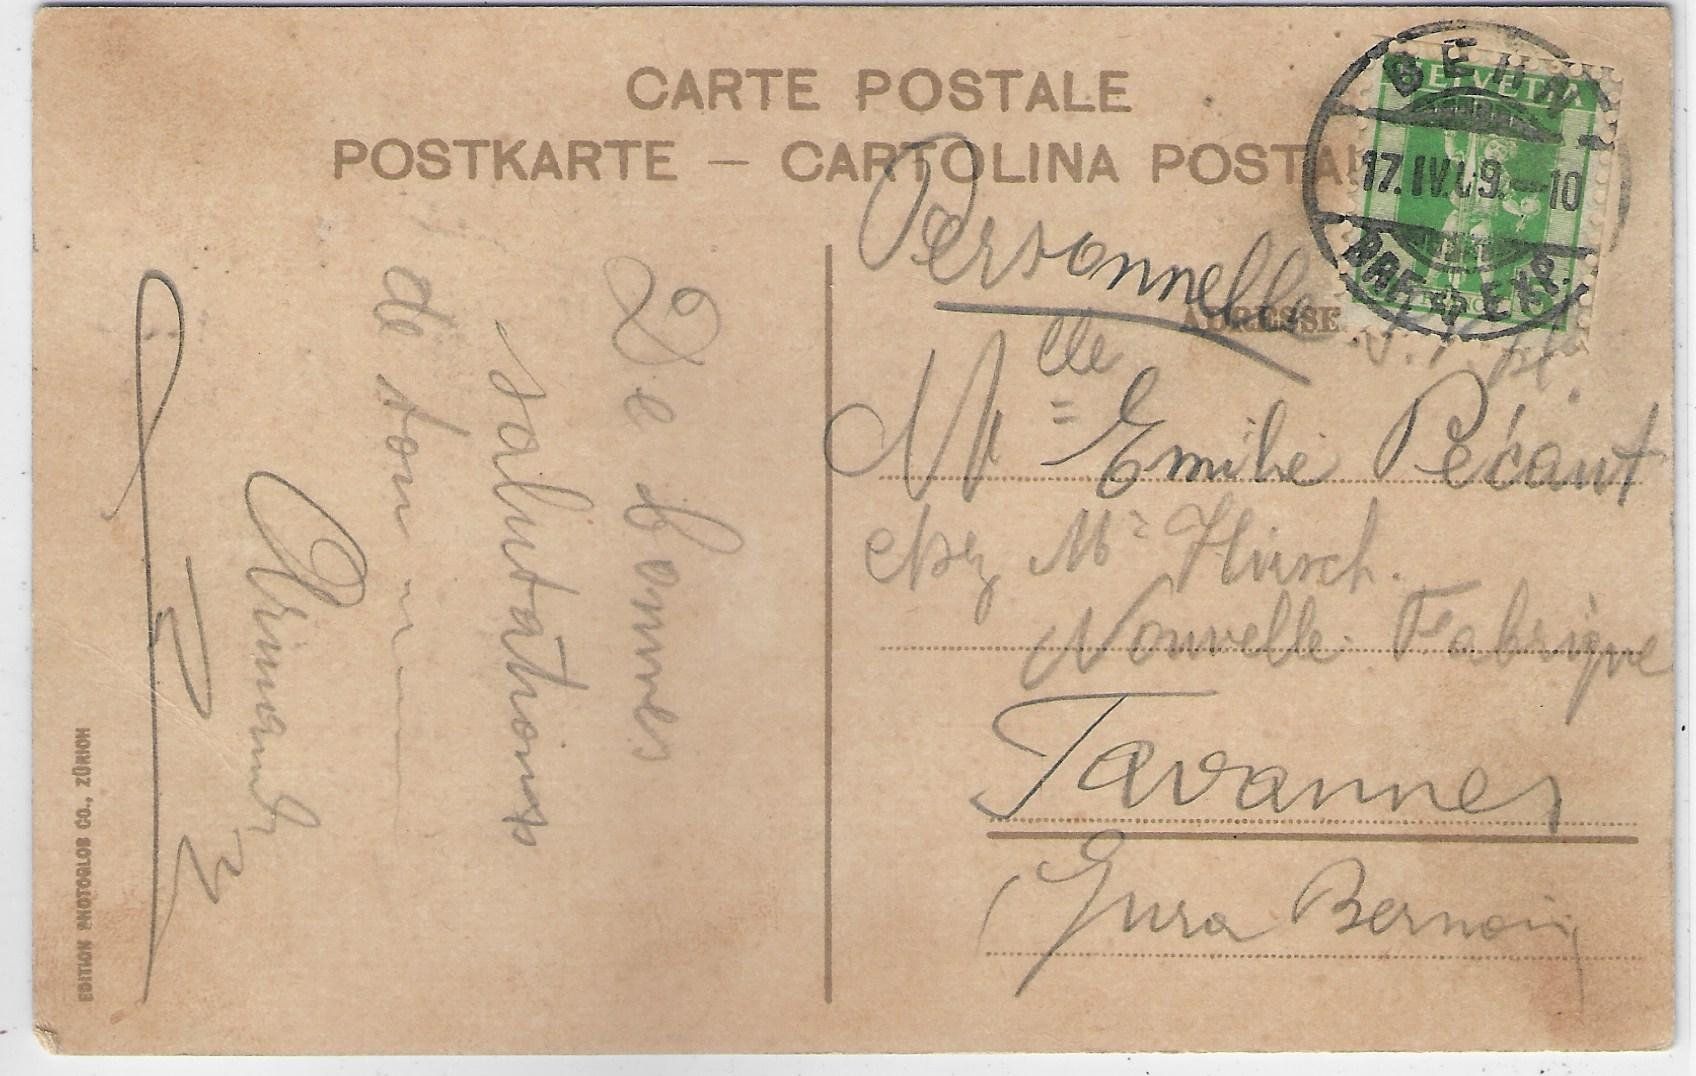 CARTE POSTALE
POSTKARTE — CARTOLINA POSTA
HELVETIA
BERN
17.IV.09.–10
BRF. EXP.
Personnelle
ADRESSE
s. v. pl.
Mlle Emilie Pécaut
chez Mr Hirsch.
Nouvelle Fabrique
Tavannes
(Jura Bernois)
De bonnes
salutations
de ton
Armand
EDITION PHOTOGLOB CO., ZÜRICH